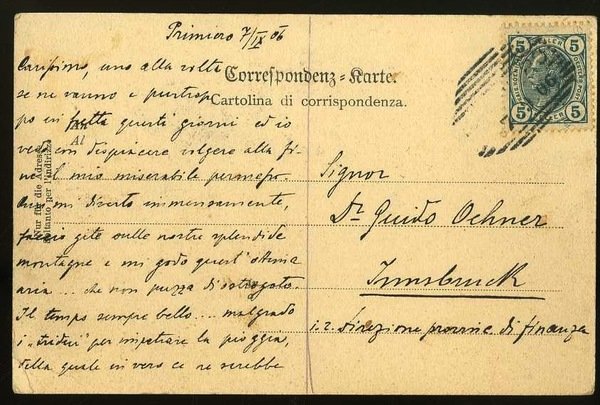 Primiero 7/IX 06
Correspondenz-Karte.
Cartolina di corrispondenza.
Carissimo, uno alla volta
se ne vanno e purtrop
po in fretta questi giorni ed io
vedo con dispiacere volgere alla fi-
ne il mio miserabile permesso.
Qui mi diverto immensamente,
faccio gite sulle nostre splendide
montagne e mi godo quest'ottima
aria... che non puzza di
Il tempo sempre bello.... malgrado
i „tridui" per impetrare la pioggia,
della quale in vero ce ne sarebbe
An
Al
Nur für die Adresse
Soltanto per l'indirizzo
Signor
Dr. Guido Ochner
Innsbruck
i. r. Direzione provinc. di finanza
5 5
5 5
HELLER HELLER